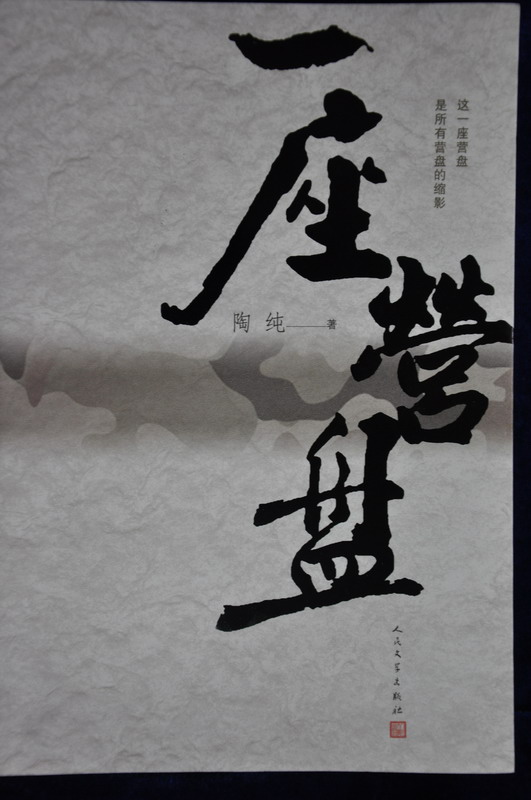 一座营盘
这一座营盘
是所有营盘的缩影
陶纯——著
人民文学出版社